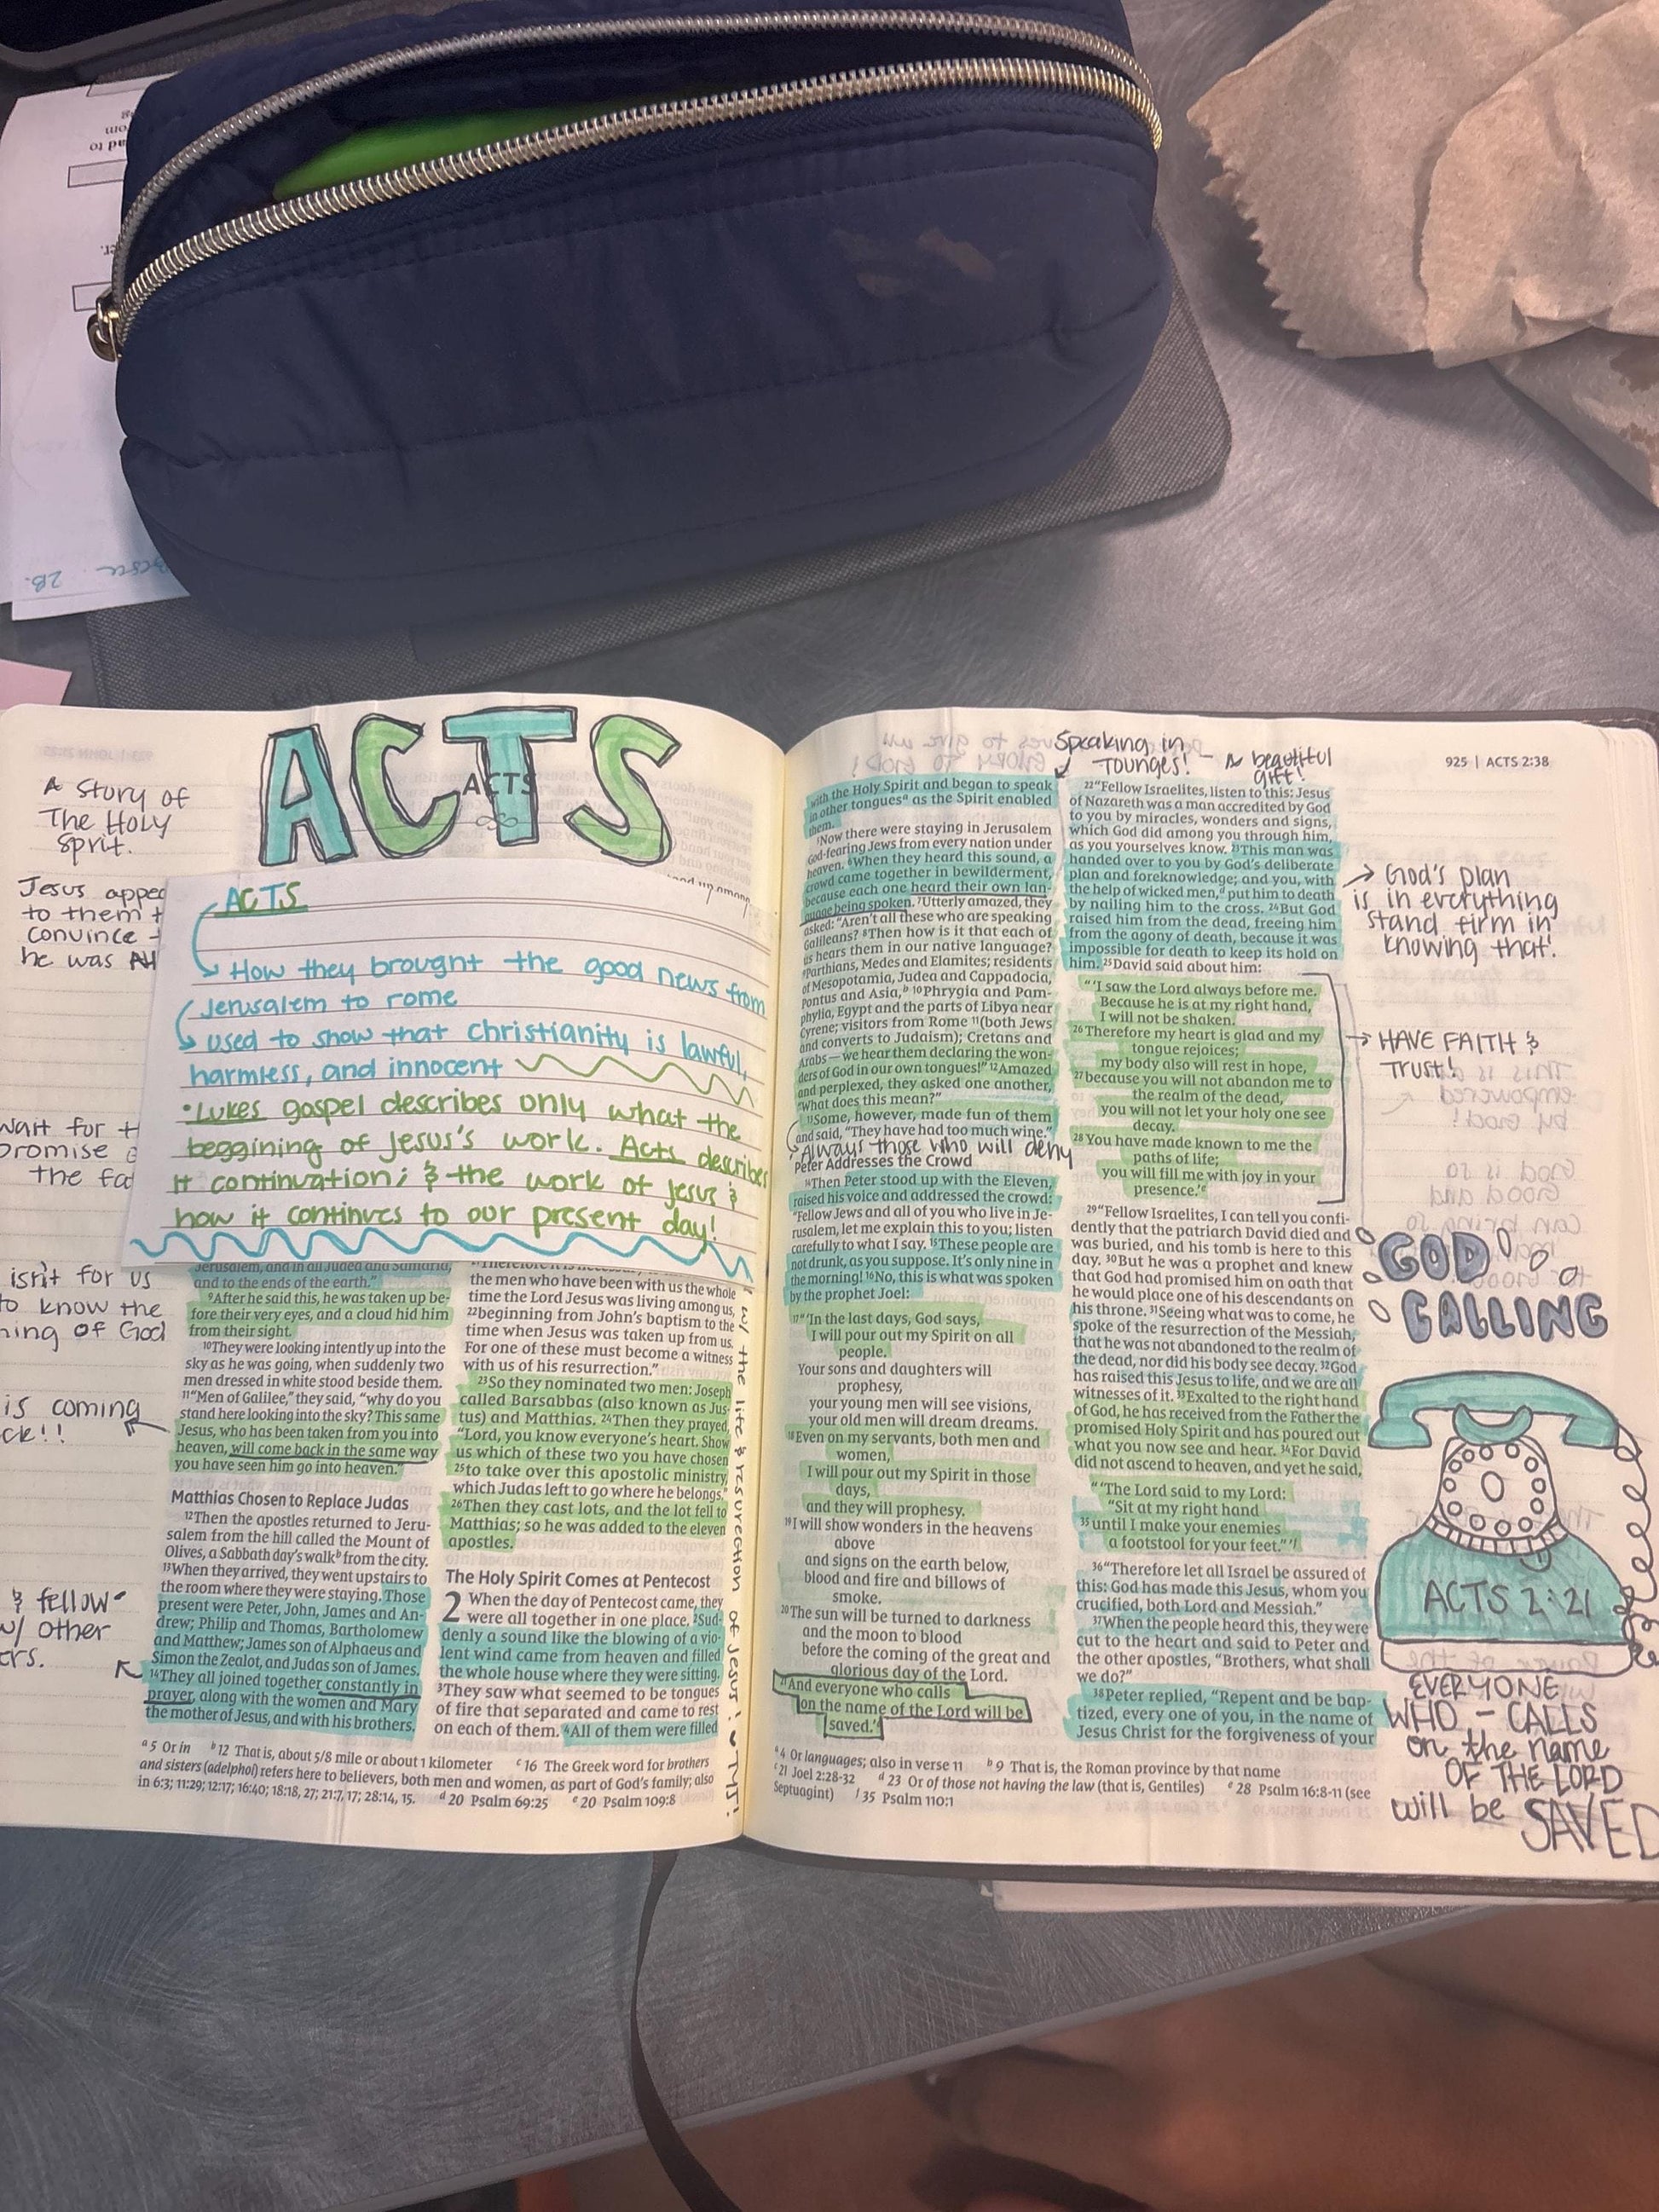 ACTS
ACTS
A Story of
The HOLY
Sprit.
Jesus
to them
convince
he was
ACTS
How they brought the good news from
Jerusalem to rome
used to show that christianity is lawful,
harmless, and innocent
•Lukes gospel describes only what the
beggining of Jesus's work. Acts describes
it continvation; & the work of jesus &
how it continues to our present day!
wait for
the
isn't for us
to know the
of God
is coming
& fellow
w/ other
Jerusalem, and in all Judea and Samaria,
and to the ends of the earth."
9After he said this, he was taken up be-
fore their very eyes, and a cloud hid him
from their sight.
10They were looking intently up into the
sky as he was going, when suddenly two
men dressed in white stood beside them.
11"Men of Galilee," they said, "why do you
stand here looking into the sky? This same
Jesus, who has been taken from you into
heaven, will come back in the same way
you have seen him go into heaven."
Matthias Chosen to Replace Judas
12Then the apostles returned to Jeru-
salem from the hill called the Mount of
Olives, a Sabbath day's walkb from the city.
13When they arrived, they went upstairs to
the room where they were staying. Those
present were Peter, John, James and An-
drew; Philip and Thomas, Bartholomew
and Matthew; James son of Alphaeus and
Simon the Zealot, and Judas son of James.
14They all joined together constantly in
prayer, along with the women and Mary
the mother of Jesus, and with his brothers.
the men who have been with us the whole
time the Lord Jesus was living among us,
22beginning from John's baptism to the
time when Jesus was taken up from us.
For one of these must become a witness
with us of his resurrection."
23So they nominated two men: Joseph
called Barsabbas (also known as Jus-
tus) and Matthias. 24Then they prayed,
"Lord, you know everyone's heart. Show
us which of these two you have chosen
25to take over this apostolic ministry,
which Judas left to go where he belongs."
26Then they cast lots, and the lot fell to
Matthias; so he was added to the eleven
apostles.
The Holy Spirit Comes at Pentecost
2 When the day of Pentecost came, they
were all together in one place. 2Sud-
denly a sound like the blowing of a vio-
lent wind came from heaven and filled
the whole house where they were sitting.
3They saw what seemed to be tongues
of fire that separated and came to rest
on each of them. 4All of them were filled
w/ the life & resurrection of Jesus!
a 5 Or in b 12 That is, about 5/8 mile or about 1 kilometer c 16 The Greek word for brothers
and sisters (adelphoi) refers here to believers, both men and women, as part of God's family; also
in 6:3; 11:29; 12:17; 16:40; 18:18, 27; 21:7, 17; 28:14, 15. d 20 Psalm 69:25 e 20 Psalm 109:8
925 | ACTS 2:38
Speaking in
Tounges! - A beautiful
gift!
with the Holy Spirit and began to speak
in other tonguesa as the Spirit enabled
them.
5Now there were staying in Jerusalem
God-fearing Jews from every nation under
heaven. 6When they heard this sound, a
crowd came together in bewilderment,
because each one heard their own lan-
guage being spoken. 7Utterly amazed, they
asked: "Aren't all these who are speaking
Galileans? 8Then how is it that each of
us hears them in our native language?
9Parthians, Medes and Elamites; residents
of Mesopotamia, Judea and Cappadocia,
Pontus and Asia,b 10Phrygia and Pam-
phylia, Egypt and the parts of Libya near
Cyrene; visitors from Rome 11(both Jews
and converts to Judaism); Cretans and
Arabs—we hear them declaring the won-
ders of God in our own tongues!" 12Amazed
and perplexed, they asked one another,
"What does this mean?"
13Some, however, made fun of them
and said, "They have had too much wine."
Always those who will deny
Peter Addresses the Crowd
14Then Peter stood up with the Eleven,
raised his voice and addressed the crowd:
"Fellow Jews and all of you who live in Je-
rusalem, let me explain this to you; listen
carefully to what I say. 15These people are
not drunk, as you suppose. It's only nine in
the morning! 16No, this is what was spoken
by the prophet Joel:
17"'In the last days, God says,
I will pour out my Spirit on all
people.
Your sons and daughters will
prophesy,
your young men will see visions,
your old men will dream dreams.
18Even on my servants, both men and
women,
I will pour out my Spirit in those
days,
and they will prophesy.
19I will show wonders in the heavens
above
and signs on the earth below,
blood and fire and billows of
smoke.
20The sun will be turned to darkness
and the moon to blood
before the coming of the great and
glorious day of the Lord.
21And everyone who calls
on the name of the Lord will be
saved.'c
22"Fellow Israelites, listen to this: Jesus
of Nazareth was a man accredited by God
to you by miracles, wonders and signs,
which God did among you through him,
as you yourselves know. 23This man was
handed over to you by God's deliberate
plan and foreknowledge; and you, with
the help of wicked men,d put him to death
by nailing him to the cross. 24But God
raised him from the dead, freeing him
from the agony of death, because it was
impossible for death to keep its hold on
him. 25David said about him:
"'I saw the Lord always before me.
Because he is at my right hand,
I will not be shaken.
26Therefore my heart is glad and my
tongue rejoices;
my body also will rest in hope,
27because you will not abandon me to
the realm of the dead,
you will not let your holy one see
decay.
28You have made known to me the
paths of life;
you will fill me with joy in your
presence.'e
29"Fellow Israelites, I can tell you confi-
dently that the patriarch David died and
was buried, and his tomb is here to this
day. 30But he was a prophet and knew
that God had promised him on oath that
he would place one of his descendants on
his throne. 31Seeing what was to come, he
spoke of the resurrection of the Messiah,
that he was not abandoned to the realm of
the dead, nor did his body see decay. 32God
has raised this Jesus to life, and we are all
witnesses of it. 33Exalted to the right hand
of God, he has received from the Father the
promised Holy Spirit and has poured out
what you now see and hear. 34For David
did not ascend to heaven, and yet he said,
"'The Lord said to my Lord:
"Sit at my right hand
35until I make your enemies
a footstool for your feet."'f
36"Therefore let all Israel be assured of
this: God has made this Jesus, whom you
crucified, both Lord and Messiah."
37When the people heard this, they were
cut to the heart and said to Peter and
the other apostles, "Brothers, what shall
we do?"
38Peter replied, "Repent and be bap-
tized, every one of you, in the name of
Jesus Christ for the forgiveness of your
God's plan
is in everything
stand firm in
knowing that!
HAVE FAITH &
Trust!
GOD
CALLING
ACTS 2:21
EVERYONE
WHO - CALLS
on the name
OF THE LORD
will be SAVED
a 4 Or languages; also in verse 11 b 9 That is, the Roman province by that name
c 21 Joel 2:28-32 d 23 Or of those not having the law (that is, Gentiles) e 28 Psalm 16:8-11 (see
Septuagint) f 35 Psalm 110:1